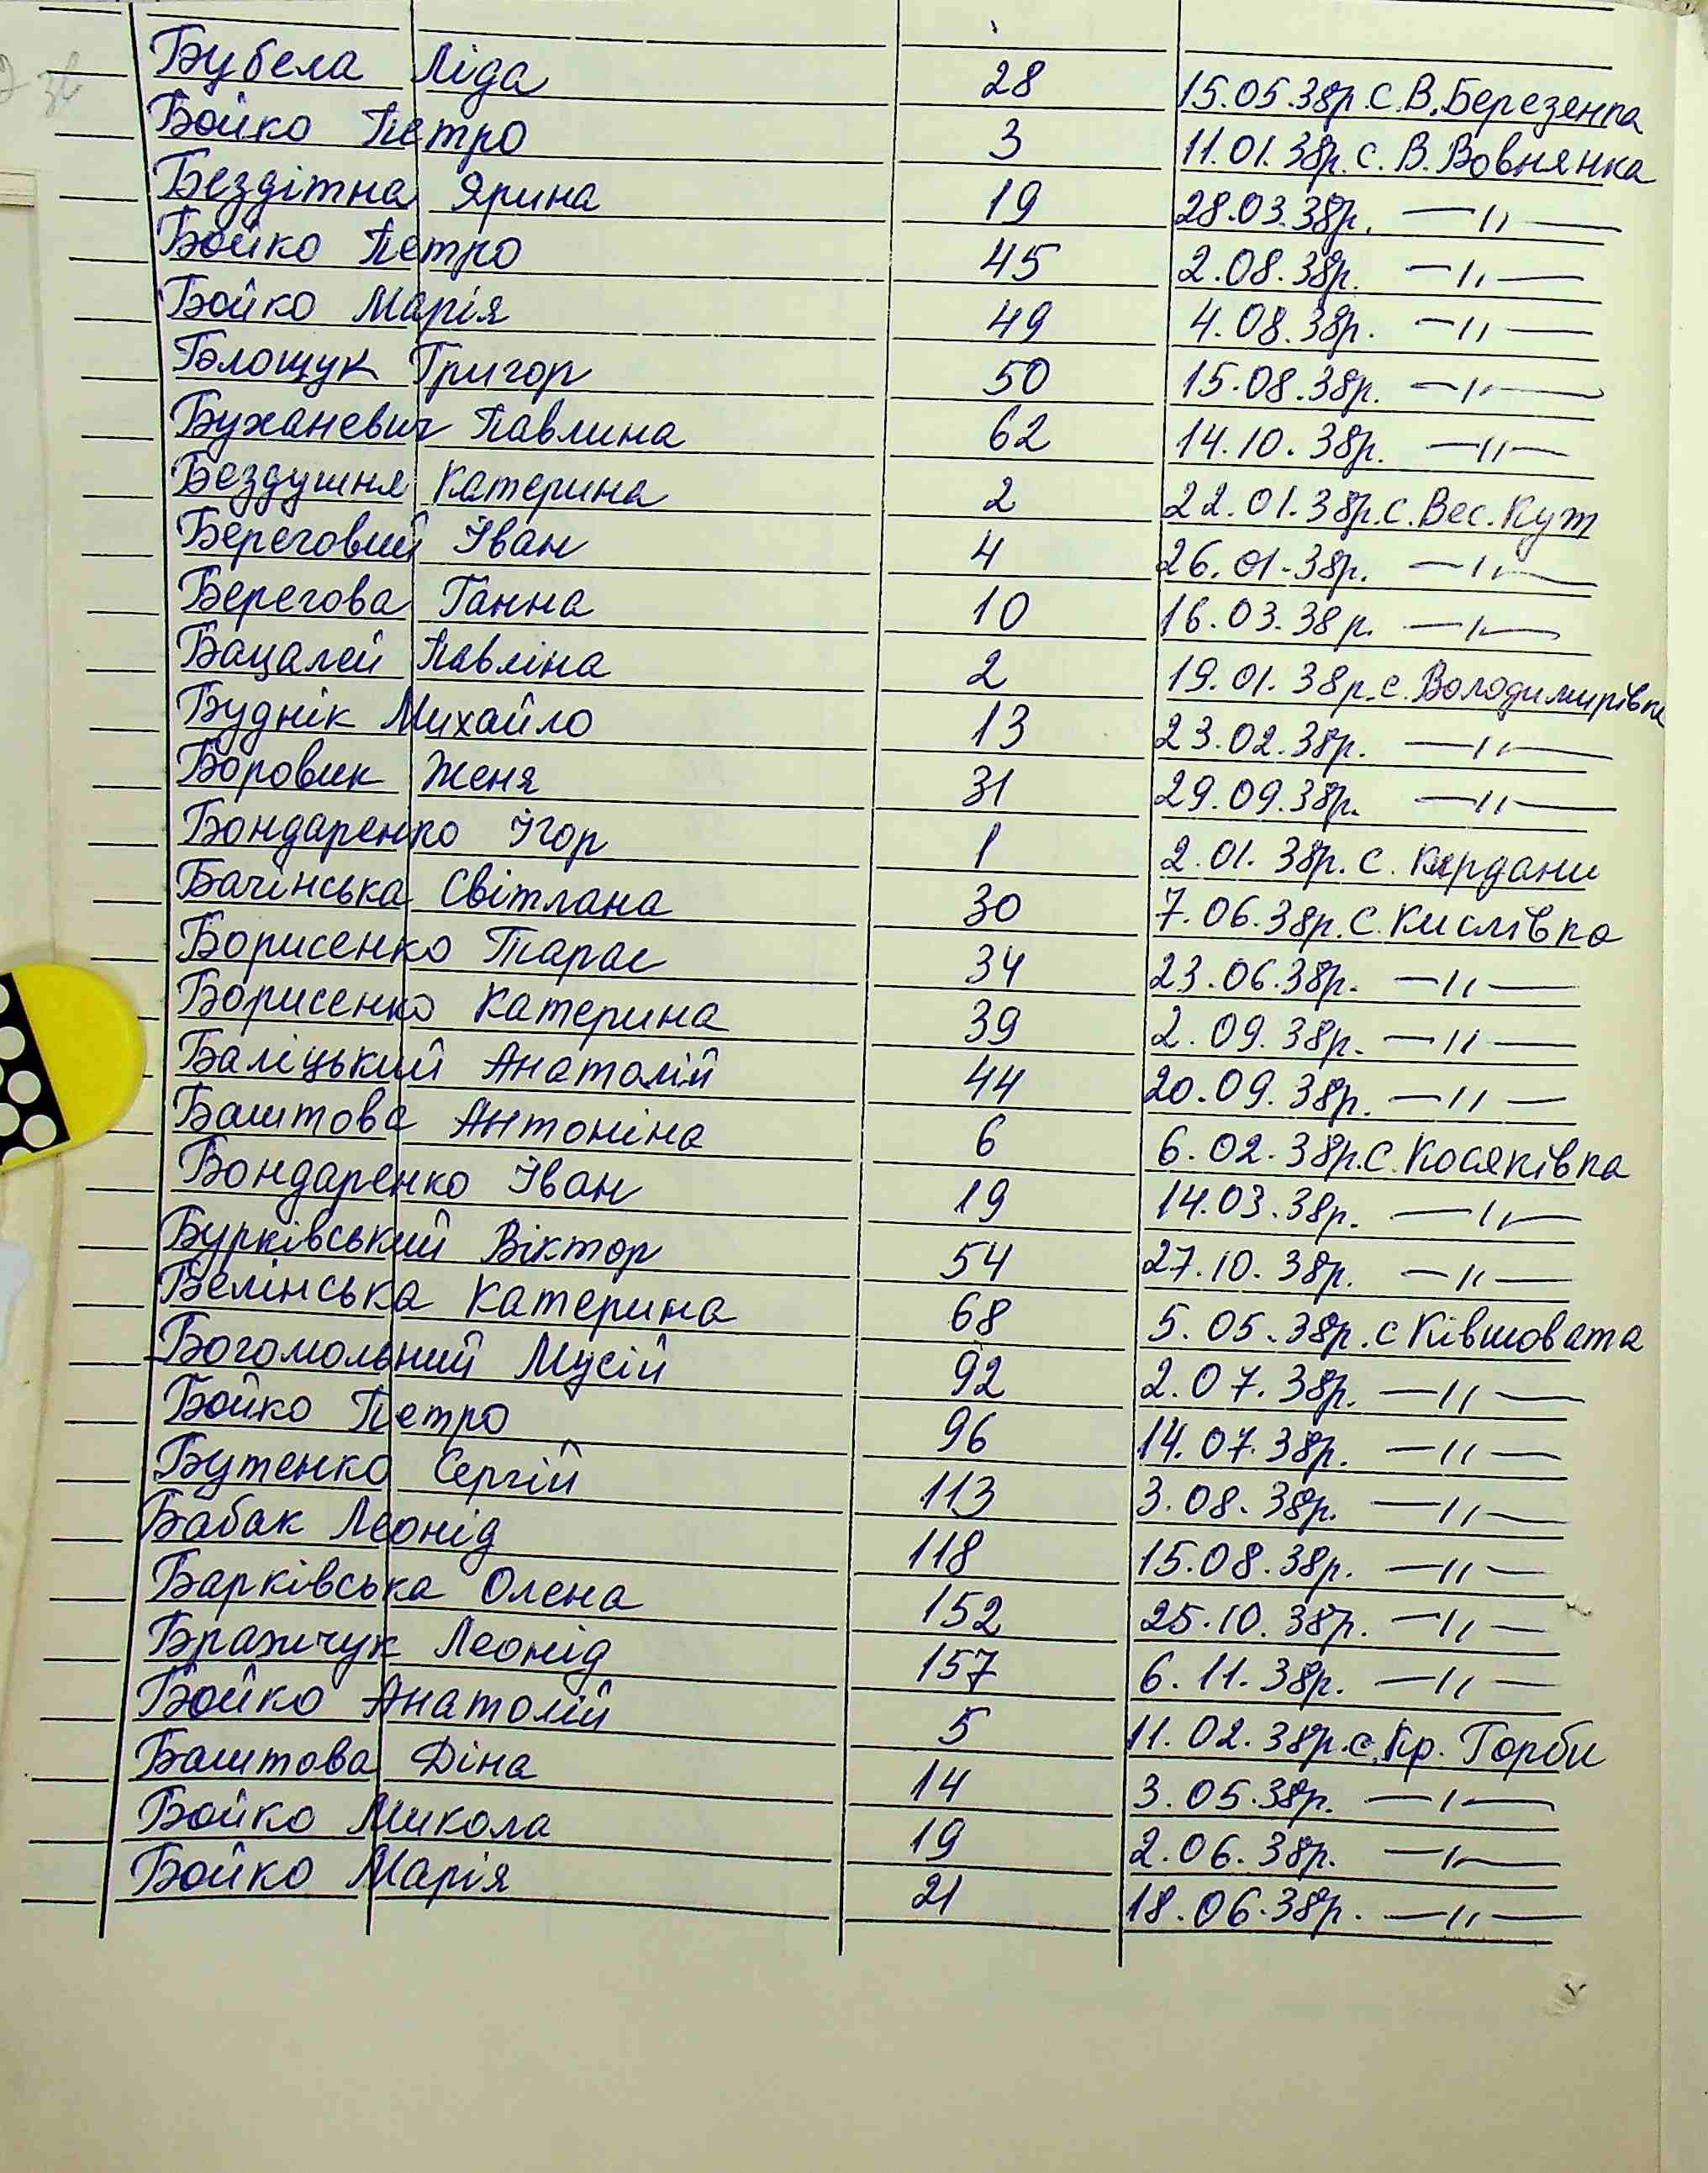 Бубела Ліда 28 15.05.38р. с. В. Березенка
Бойко Петро 3 11.01.38р. с. В. Вовнянка
Бездітна Ярина 19 28.03.38р. —〃—
Бойко Петро 45 2.08.38р. —〃—
Бойко Марія 49 4.08.38р. —〃—
Блощук Григор 50 15.08.38р. —〃—
Буханевич Павлина 62 14.10.38р. —〃—
Бездушня Катерина 2 22.01.38р. с. Вес. Кут
Береговий Іван 4 26.01.38р. —〃—
Берегова Ганна 10 16.03.38р. —〃—
Бацалей Павліна 2 19.01.38р. с. Володимирівка
Буднік Михайло 13 23.02.38р. —〃—
Боровик Женя 31 29.09.38р. —〃—
Бондаренко Ігор 1 2.01.38р. с. Кирдани
Бачінська Світлана 30 7.06.38р. с. Кислівка
Борисенко Тарас 34 23.06.38р. —〃—
Борисенко Катерина 39 2.09.38р. —〃—
Баліцький Анатолій 44 20.09.38р. —〃—
Баштова Антоніна 6 6.02.38р. с. Косяківка
Бондаренко Іван 19 14.03.38р. —〃—
Бурківський Віктор 54 27.10.38р. —〃—
Белінська Катерина 68 5.05.38р. с Ківшовата
Богомольний Мусій 92 2.07.38р. —〃—
Бойко Петро 96 14.07.38р. —〃—
Бутенко Сергій 113 3.08.38р. —〃—
Бабак Леонід 118 15.08.38р. —〃—
Барківська Олена 152 25.10.38р. —〃—
Бражчук Леонід 157 6.11.38р. —〃—
Бойко Анатолій 5 11.02.38р. с. Кр. Горби
Баштова Діна 14 3.05.38р. —〃—
Бойко Микола 19 2.06.38р. —〃—
Бойко Марія 21 18.06.38р. —〃—